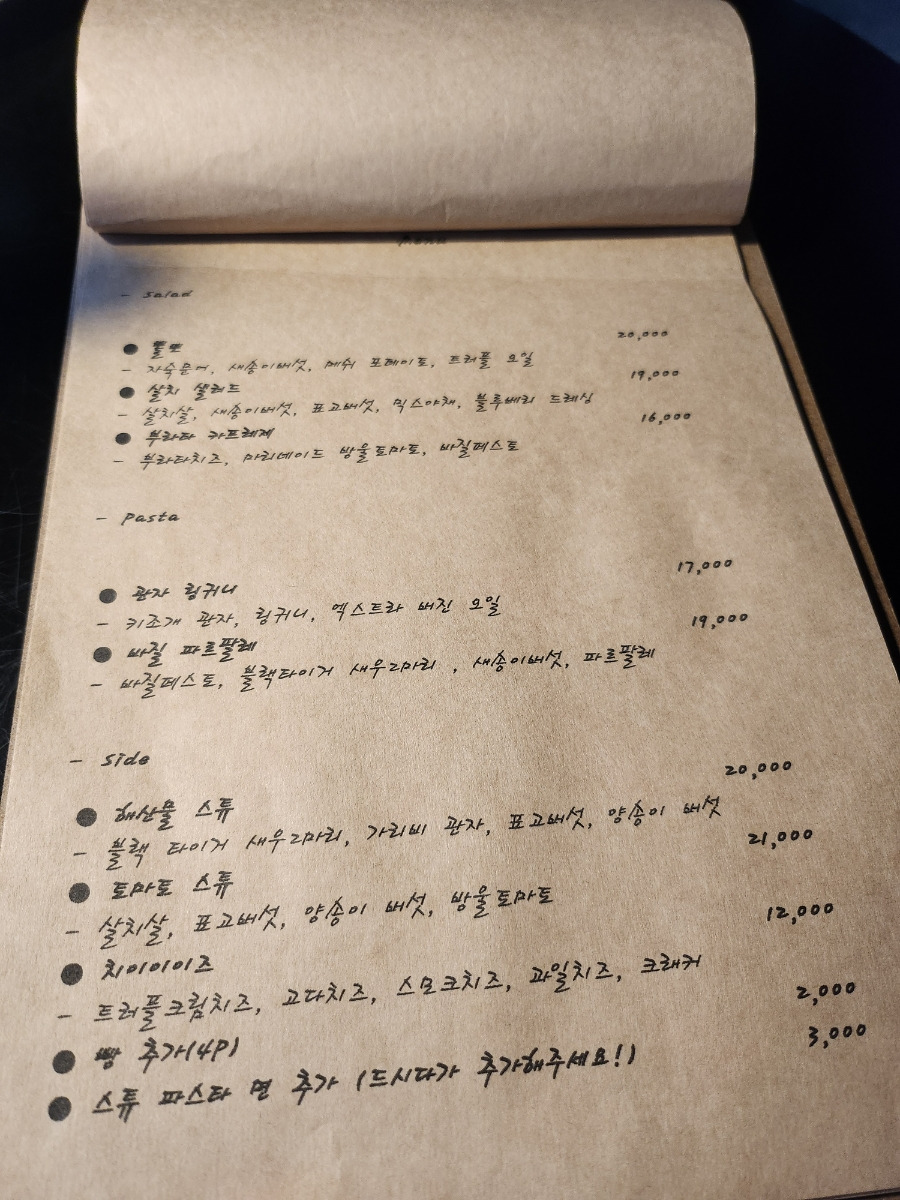 Menu
- Salad
20,000
● 뽈뽀
- 자숙문어, 새송이버섯, 메쉬 포테이토, 트러플 오일
19,000
● 살치 샐러드
- 살치살, 새송이버섯, 표고버섯, 믹스야채, 블루베리 드레싱
16,000
● 부라타 카프레제
- 부라타치즈, 마리네이드 방울토마토, 바질페스토
- Pasta
17,000
● 관자 링귀니
- 키조개 관자, 링귀니, 엑스트라 버진 오일
19,000
● 바질 파르팔레
- 바질페스토, 블랙타이거 새우2마리 , 새송이버섯, 파르팔레
- Side
20,000
● 해산물 스튜
- 블랙 타이거 새우2마리, 가리비 관자, 표고버섯, 양송이 버섯
21,000
● 토마토 스튜
- 살치살, 표고버섯, 양송이 버섯, 방울토마토
12,000
● 치이이이즈
- 트러플크림치즈, 고다치즈, 스모크치즈, 과일치즈, 크래커
2,000
● 빵 추가(4P)
3,000
● 스튜 파스타 면 추가 (드시다가 추가해주세요!)